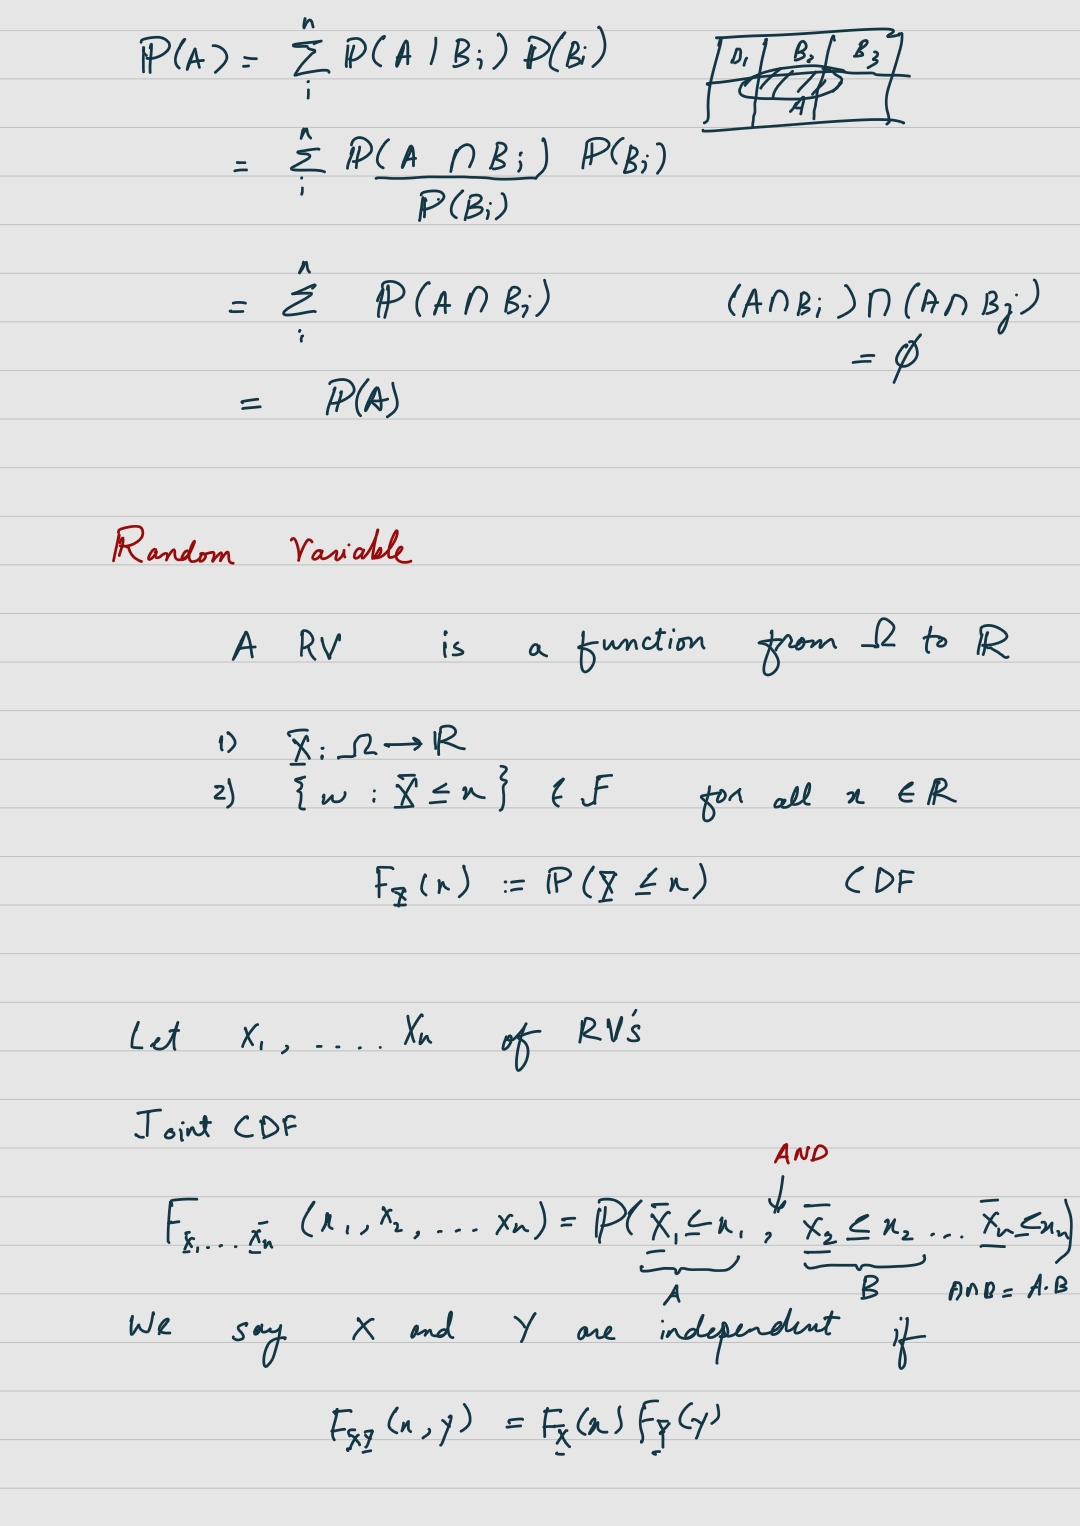 ℙ(A) = Σ_i^n ℙ(A | B_i) ℙ(B_i)
D_1 B_2 B_3
A
= Σ_i^n ℙ(A ∩ B_i) / ℙ(B_i) ℙ(B_i)
= Σ_i^n ℙ(A ∩ B_i) (A ∩ B_i) ∩ (A ∩ B_j)
= ∅
= ℙ(A)
Random Variable
A RV is a function from Ω to ℝ
1) X : Ω → ℝ
2) {w : X ≤ x} ∈ F for all x ∈ ℝ
F_X(x) := ℙ(X ≤ x) CDF
Let X_1, .... X_n of RV's
Joint CDF
AND
F_{X_1...X_n} (x_1, x_2, ... x_n) = ℙ(X_1 ≤ x_1, X_2 ≤ x_2 ... X_n ≤ x_n)
A B A∩B = A·B
We say X and Y are independent if
F_{XY}(x, y) = F_X(x) F_Y(y)